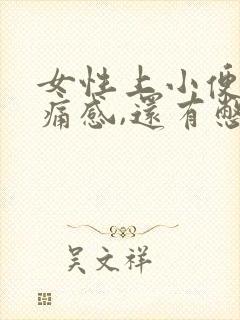 女性上小便
痛感,還有憋
吴文祥